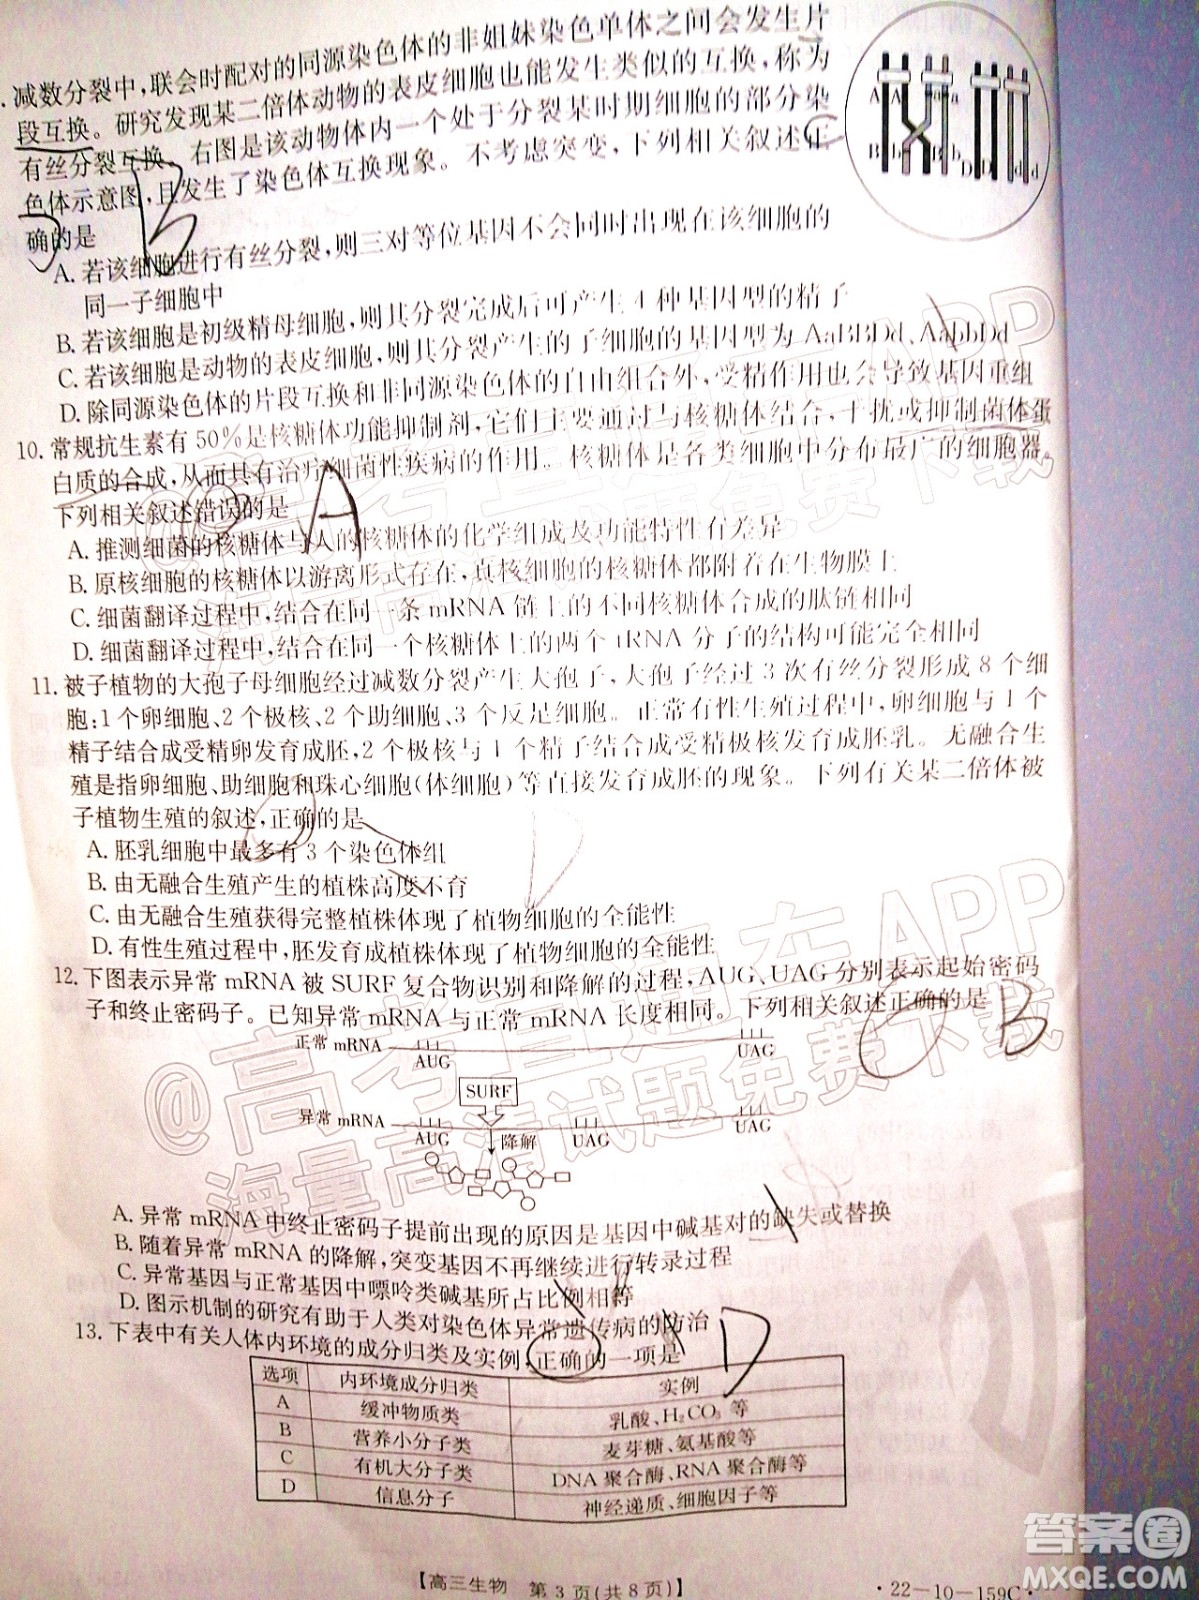 .减数分裂中,联会时配对的同源染色体的非姐妹染色单体之间会发生片
段互换。研究发现某二倍体动物的表皮细胞也能发生类似的互换,称为
有丝分裂互换。右图是该动物体内一个处于分裂某时期细胞的部分染
色体示意图,且发生了染色体互换现象。不考虑突变,下列相关叙述正
确的是
A. 若该细胞进行有丝分裂,则三对等位基因不会同时出现在该细胞的
同一子细胞中
B. 若该细胞是初级精母细胞,则其分裂完成后可产生4种基因型的精子
C. 若该细胞是动物的表皮细胞,则其分裂产生的子细胞的基因型为 AaBBDd、AabbDd
D. 除同源染色体的片段互换和非同源染色体的自由组合外,受精作用也会导致基因重组
10. 常规抗生素有50%是核糖体功能抑制剂,它们主要通过与核糖体结合,干扰或抑制菌体蛋
白质的合成,从而具有治疗细菌性疾病的作用。核糖体是各类细胞中分布最广的细胞器。
下列相关叙述错误的是
A. 推测细菌的核糖体与人的核糖体的化学组成及功能特性有差异
B. 原核细胞的核糖体以游离形式存在,真核细胞的核糖体都附着在生物膜上
C. 细菌翻译过程中,结合在同一条 mRNA 链上的不同核糖体合成的肽链相同
D. 细菌翻译过程中,结合在同一个核糖体上的两个 tRNA 分子的结构可能完全相同
11. 被子植物的大孢子母细胞经过减数分裂产生大孢子,大孢子经过3次有丝分裂形成8个细
胞:1个卵细胞、2个极核、2个助细胞、3个反足细胞。正常有性生殖过程中,卵细胞与1个
精子结合成受精卵发育成胚,2个极核与1个精子结合成受精极核发育成胚乳。无融合生
殖是指卵细胞、助细胞和珠心细胞(体细胞)等直接发育成胚的现象。下列有关某二倍体被
子植物生殖的叙述,正确的是
A. 胚乳细胞中最多有3个染色体组
B. 由无融合生殖产生的植株高度不育
C. 由无融合生殖获得完整植株体现了植物细胞的全能性
D. 有性生殖过程中,胚发育成植株体现了植物细胞的全能性
12. 下图表示异常 mRNA 被 SURF 复合物识别和降解的过程,AUG、UAG 分别表示起始密码
子和终止密码子。已知异常 mRNA 与正常 mRNA 长度相同。下列相关叙述正确的是
正常 mRNA
AUG UAG
SURF
异常 mRNA
AUG 降解 UAG UAG
A. 异常 mRNA 中终止密码子提前出现的原因是基因中碱基对的缺失或替换
B. 随着异常 mRNA 的降解,突变基因不再继续进行转录过程
C. 异常基因与正常基因中嘌呤类碱基所占比例相等
D. 图示机制的研究有助于人类对染色体异常遗传病的防治
13. 下表中有关人体内环境的成分归类及实例,正确的一项是
选项 内环境成分归类 实例
A 缓冲物质类 乳酸、H₂CO₃ 等
B 营养小分子类 麦芽糖、氨基酸等
C 有机大分子类 DNA 聚合酶、RNA 聚合酶等
D 信息分子 神经递质、细胞因子等
【高三生物 第3页(共8页)】
·22-10-159C·
B
A
D
B
D
A A a a
B b B b D D d d
@高考直通车APP
海量高清试题免费下载
@高考直通车APP
海量高清试题免费下载
答案圈
MXQE.COM